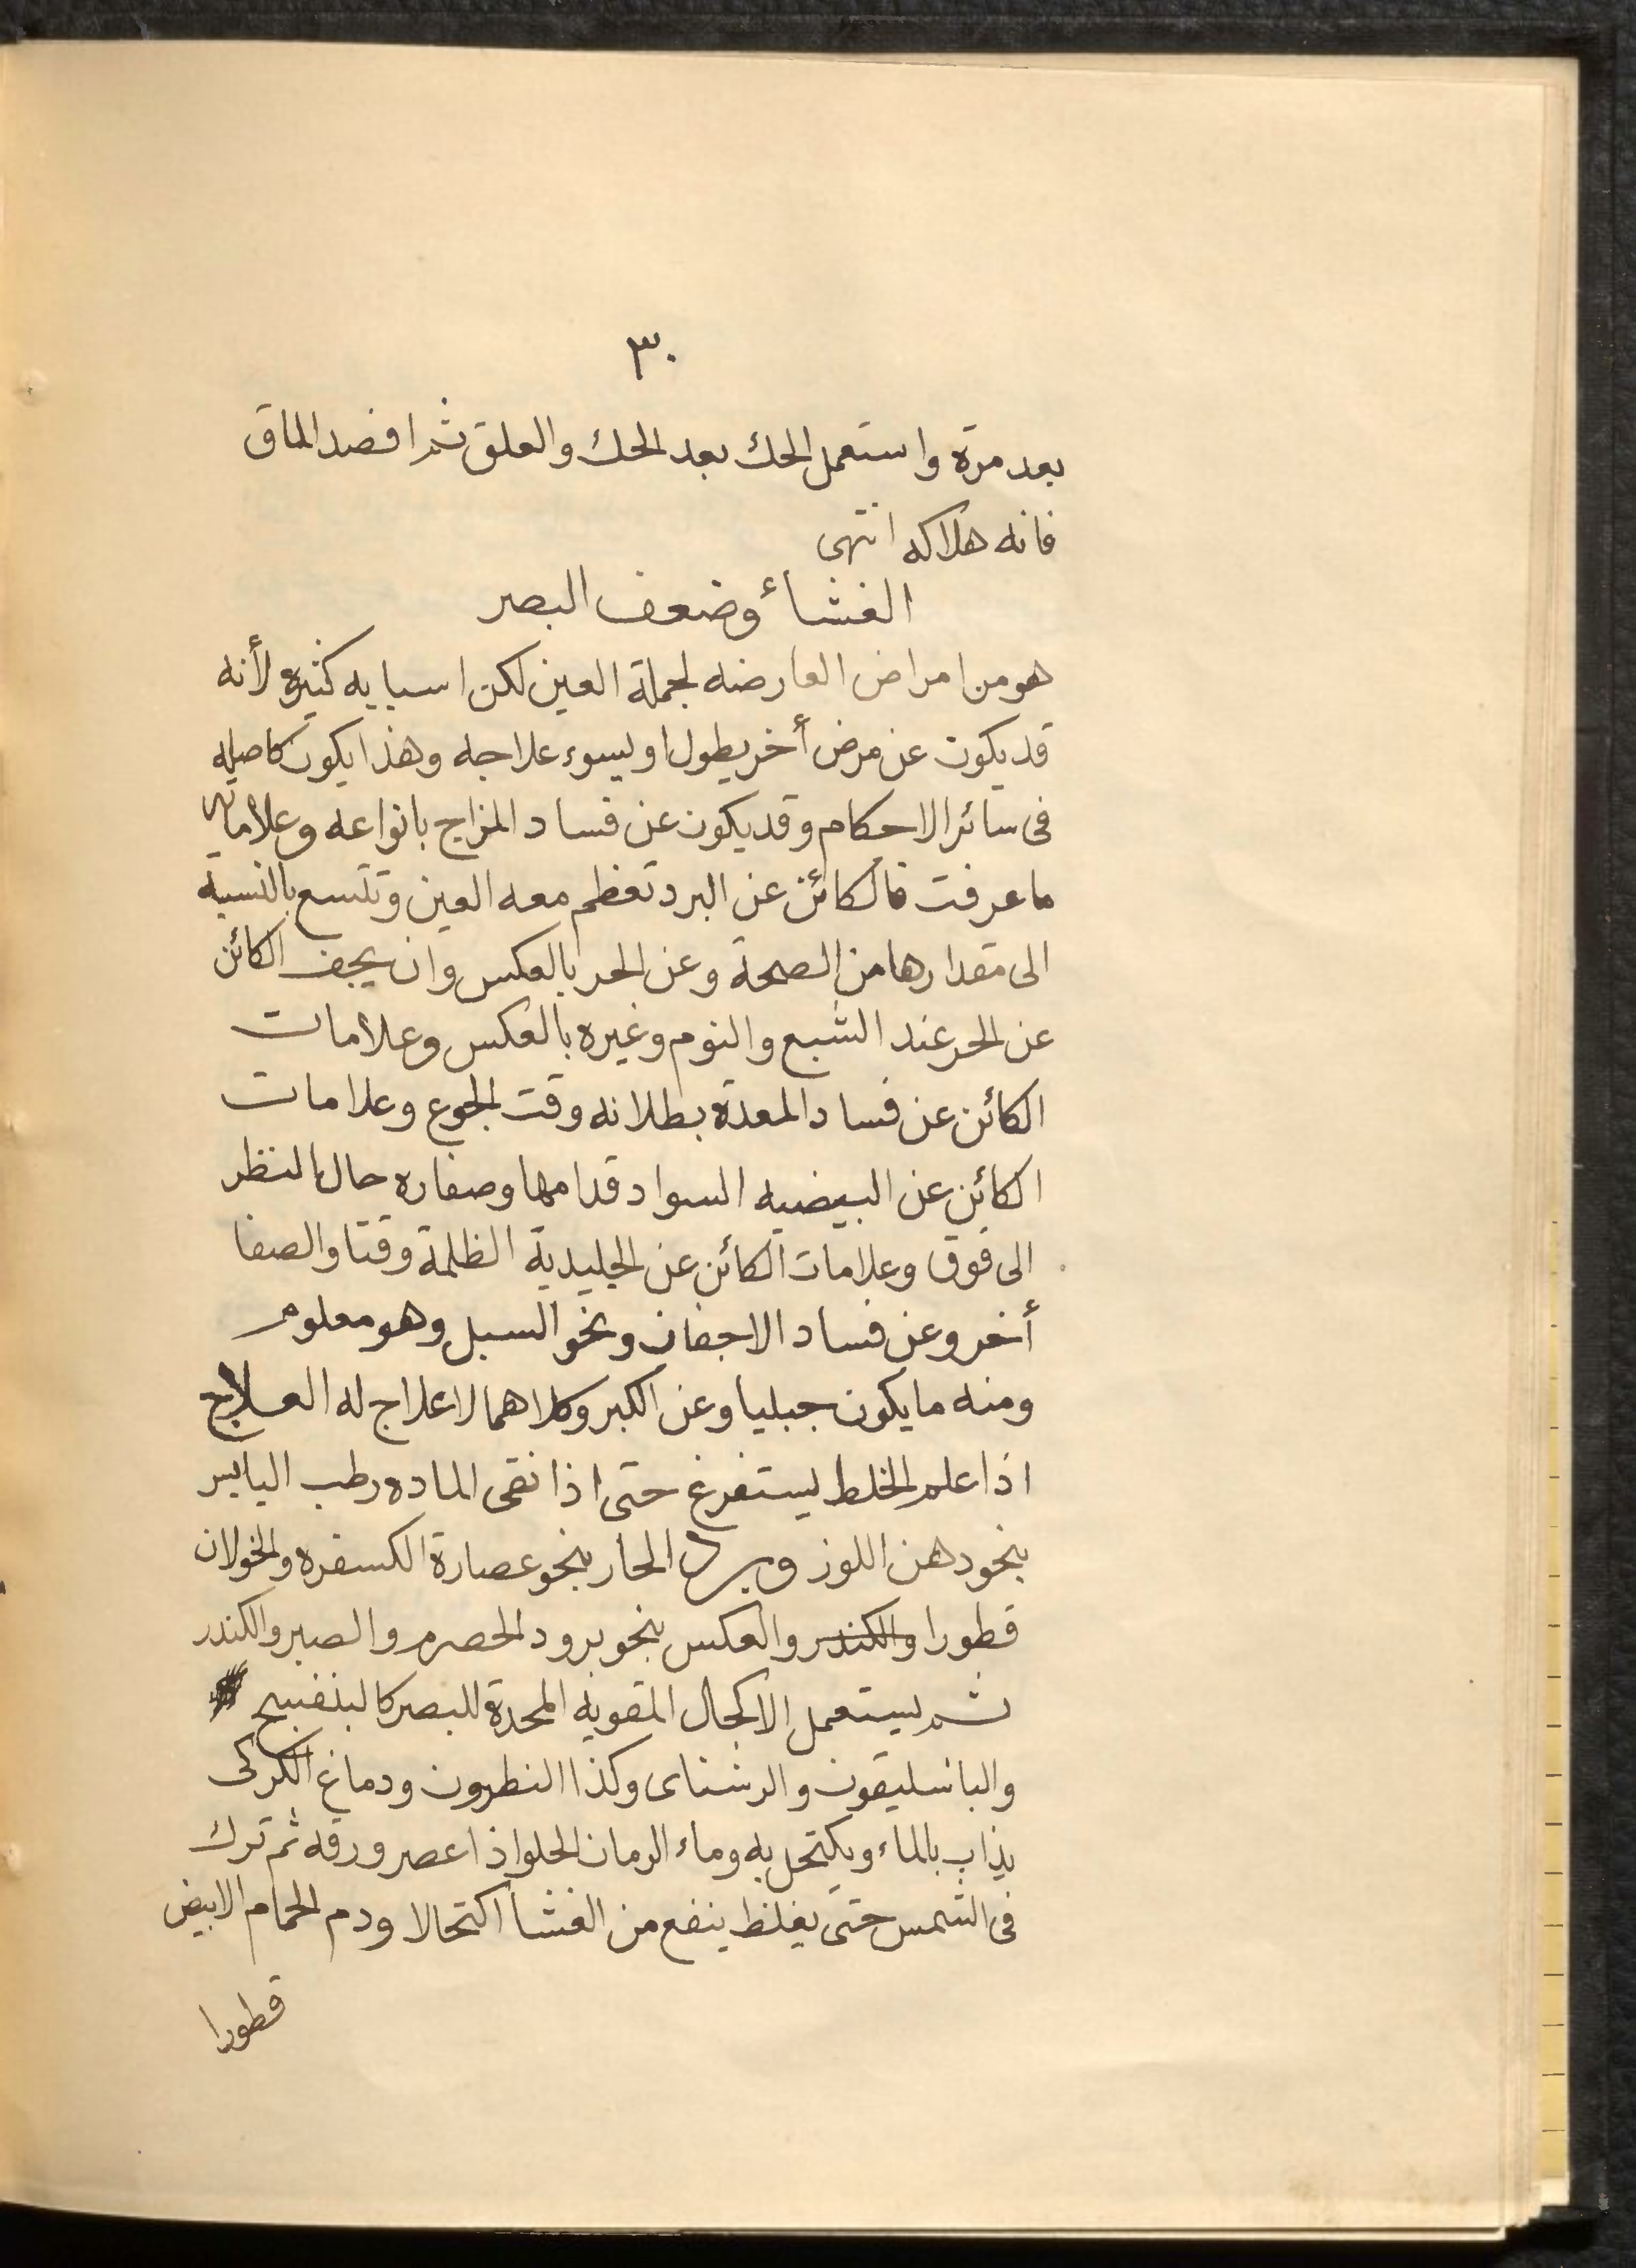 ٣٠
بعد مرة واستعمل الحك بعد الحك والعلق ثم افصد الماق
فانه هلاكه انتهى
الغشأ وضعف البصر
هو من امراض العارضه لجملة العين لكن اسبابه كثيره لأنه
قد يكون عن مرض أخر يطول او ليسوء علاجه وهذا يكون كاصله
فى سائر الاحكام وقد يكون عن فساد المزاج بانواعه وعلاماته
ما عرفت فالكائن عن البرد تعظم معه العين وتتسع بالنسبة
الى مقدارها من الصحة وعن الحر بالعكس وان يجف الكائن
عن الحر عند الشبع والنوم وغيره بالعكس وعلامات
الكائن عن فساد المعدة بطلانه وقت الجوع وعلامات
الكائن عن البيضيه السواد قدامها وصفاره حال النظر
الى فوق وعلامات الكائن عن الجليدية الظلمة وقتا والصفا
أخر وعن فساد الاجفان ونحو السبل وهو معلوم
ومنه ما يكون جبليا وعن الكبر وكلاهما لا علاج له العلاج
اذا علم الخلط ليستفرغ حتى اذا نقى الماده رطب اليابس
بنحو دهن اللوز وبرد الحار بنحو عصارة الكسفره والخولان
قطورا والكندر والعكس بنحو برود الحصرم والصبر والكندر
ثم ليستعمل الاكحال المقويه المحدة للبصر كالبنفسج
والباسليقون والرشناى وكذا النطرون ودماغ الكركى
يذاب بالماء ويكتحل به وماء الرمان الحلو اذا عصر ورقه ثم ترك
فى الشمس حتى يغلظ ينفع من الغشأ اكتحالا ودم الحمام الابيض
قطورا